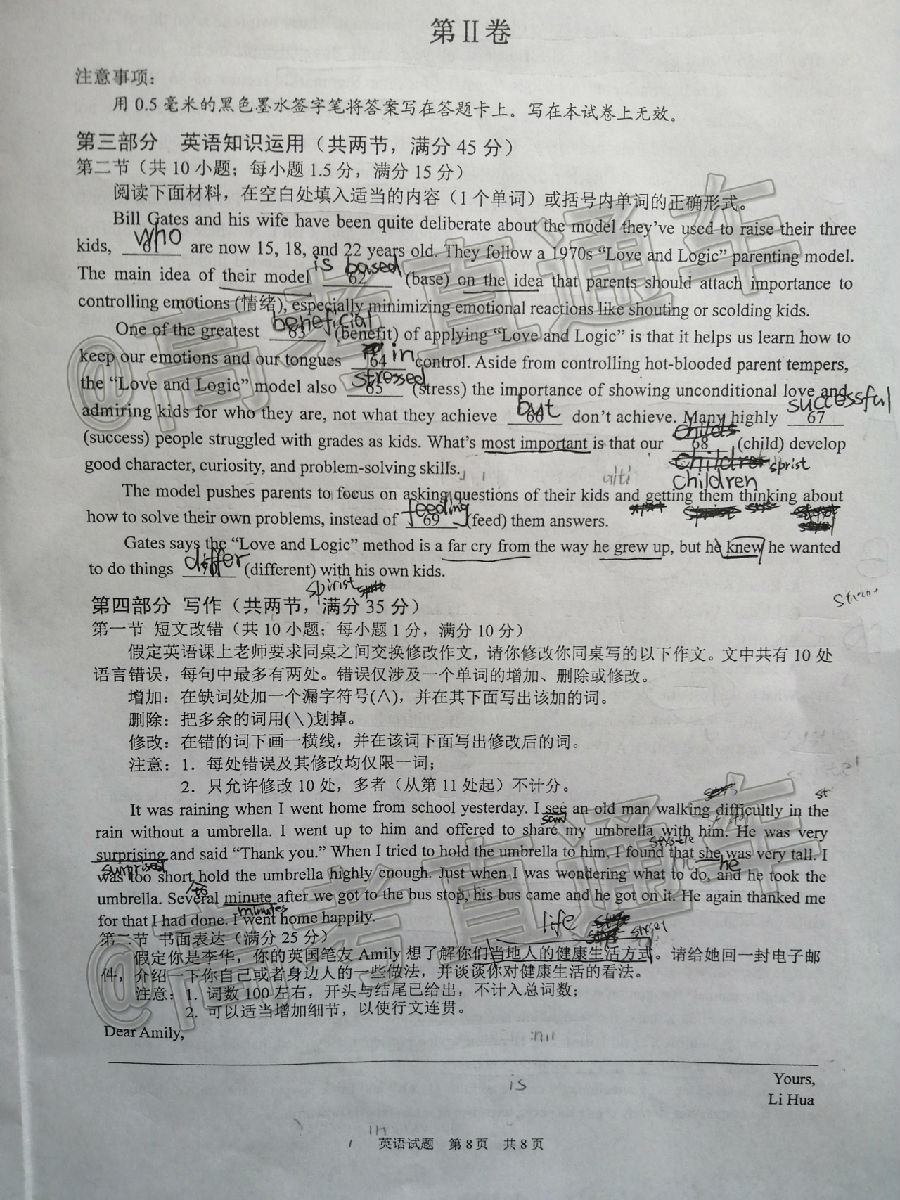 第Ⅱ卷
注意事项：
用 0.5 毫米的黑色墨水签字笔将答案写在答题卡上。写在本试卷上无效。
第三部分 英语知识运用（共两节，满分 45 分）
第二节（共 10 小题；每小题 1.5 分，满分 15 分）
阅读下面材料，在空白处填入适当的内容（1 个单词）或括号内单词的正确形式。
Bill Gates and his wife have been quite deliberate about the model they've used to raise their three
kids, who are now 15, 18, and 22 years old. They follow a 1970s “Love and Logic” parenting model.
is based
The main idea of their model 62 (base) on the idea that parents should attach importance to
controlling emotions (情绪), especially minimizing emotional reactions like shouting or scolding kids.
beneficial
One of the greatest 63 (benefit) of applying “Love and Logic” is that it helps us learn how to
in
keep our emotions and our tongues 64 control. Aside from controlling hot-blooded parent tempers,
stressed
the “Love and Logic” model also 65 (stress) the importance of showing unconditional love and
but
successful
admiring kids for who they are, not what they achieve 66 don't achieve. Many highly 67
(success) people struggled with grades as kids. What's most important is that our 68 (child) develop
good character, curiosity, and problem-solving skills.
children
The model pushes parents to focus on asking questions of their kids and getting them thinking about
feeding
how to solve their own problems, instead of 69 (feed) them answers.
Gates says the “Love and Logic” method is a far cry from the way he grew up, but he knew he wanted
differ
to do things 70 (different) with his own kids.
第四部分 写作（共两节，满分 35 分）
第一节 短文改错（共 10 小题；每小题 1 分，满分 10 分）
假定英语课上老师要求同桌之间交换修改作文，请你修改你同桌写的以下作文。文中共有 10 处
语言错误，每句中最多有两处。错误仅涉及一个单词的增加、删除或修改。
增加：在缺词处加一个漏字符号(∧)，并在其下面写出该加的词。
删除：把多余的词用(\)划掉。
修改：在错的词下画一横线，并在该词下面写出修改后的词。
注意：1. 每处错误及其修改均仅限一词；
2. 只允许修改 10 处，多者（从第 11 处起）不计分。
It was raining when I went home from school yesterday. I see an old man walking difficultly in the
saw
rain without a umbrella. I went up to him and offered to share my umbrella with him. He was very
surprising and said “Thank you.” When I tried to hold the umbrella to him, I found that she was very tall. I
surprised
he
was too short hold the umbrella highly enough. Just when I was wondering what to do, and he took the
to
umbrella. Several minute after we got to the bus stop, his bus came and he got on it. He again thanked me
minutes
for that I had done. I went home happily.
life
第二节 书面表达（满分 25 分）
假定你是李华，你的英国笔友 Amily 想了解你们当地人的健康生活方式。请给她回一封电子邮
件，介绍一下你自己或者身边人的一些做法，并谈谈你对健康生活的看法。
注意：1. 词数 100 左右，开头与结尾已给出，不计入总词数；
2. 可以适当增加细节，以使行文连贯。
Dear Amily,
is
Yours,
Li Hua
英语试题 第 8 页 共 8 页
@高考直通车
@高考直通车